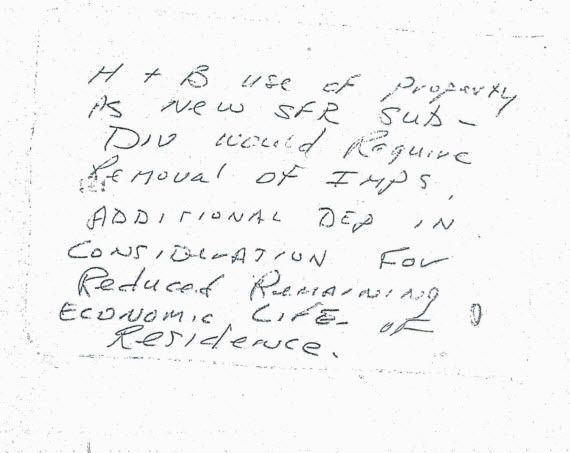 H + B use of Property
As New SFR Sub-
Div would Require
Removal of Imps.
Additional Dep in
Consideration For
Reduced Remaining
Economic Life of
Residence.